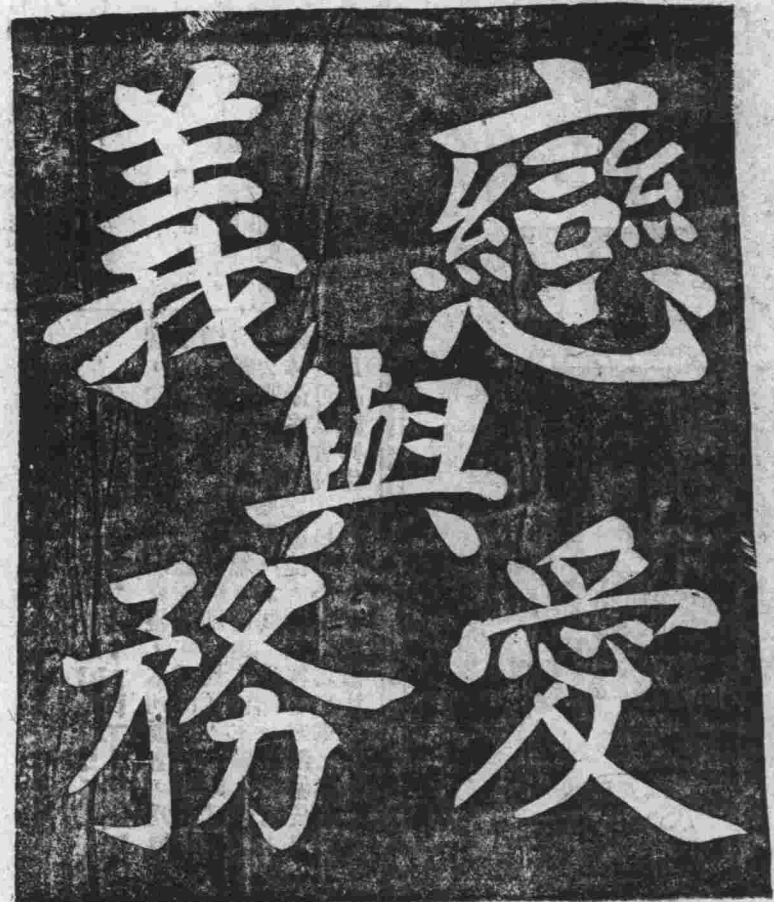 戀愛
與
義務